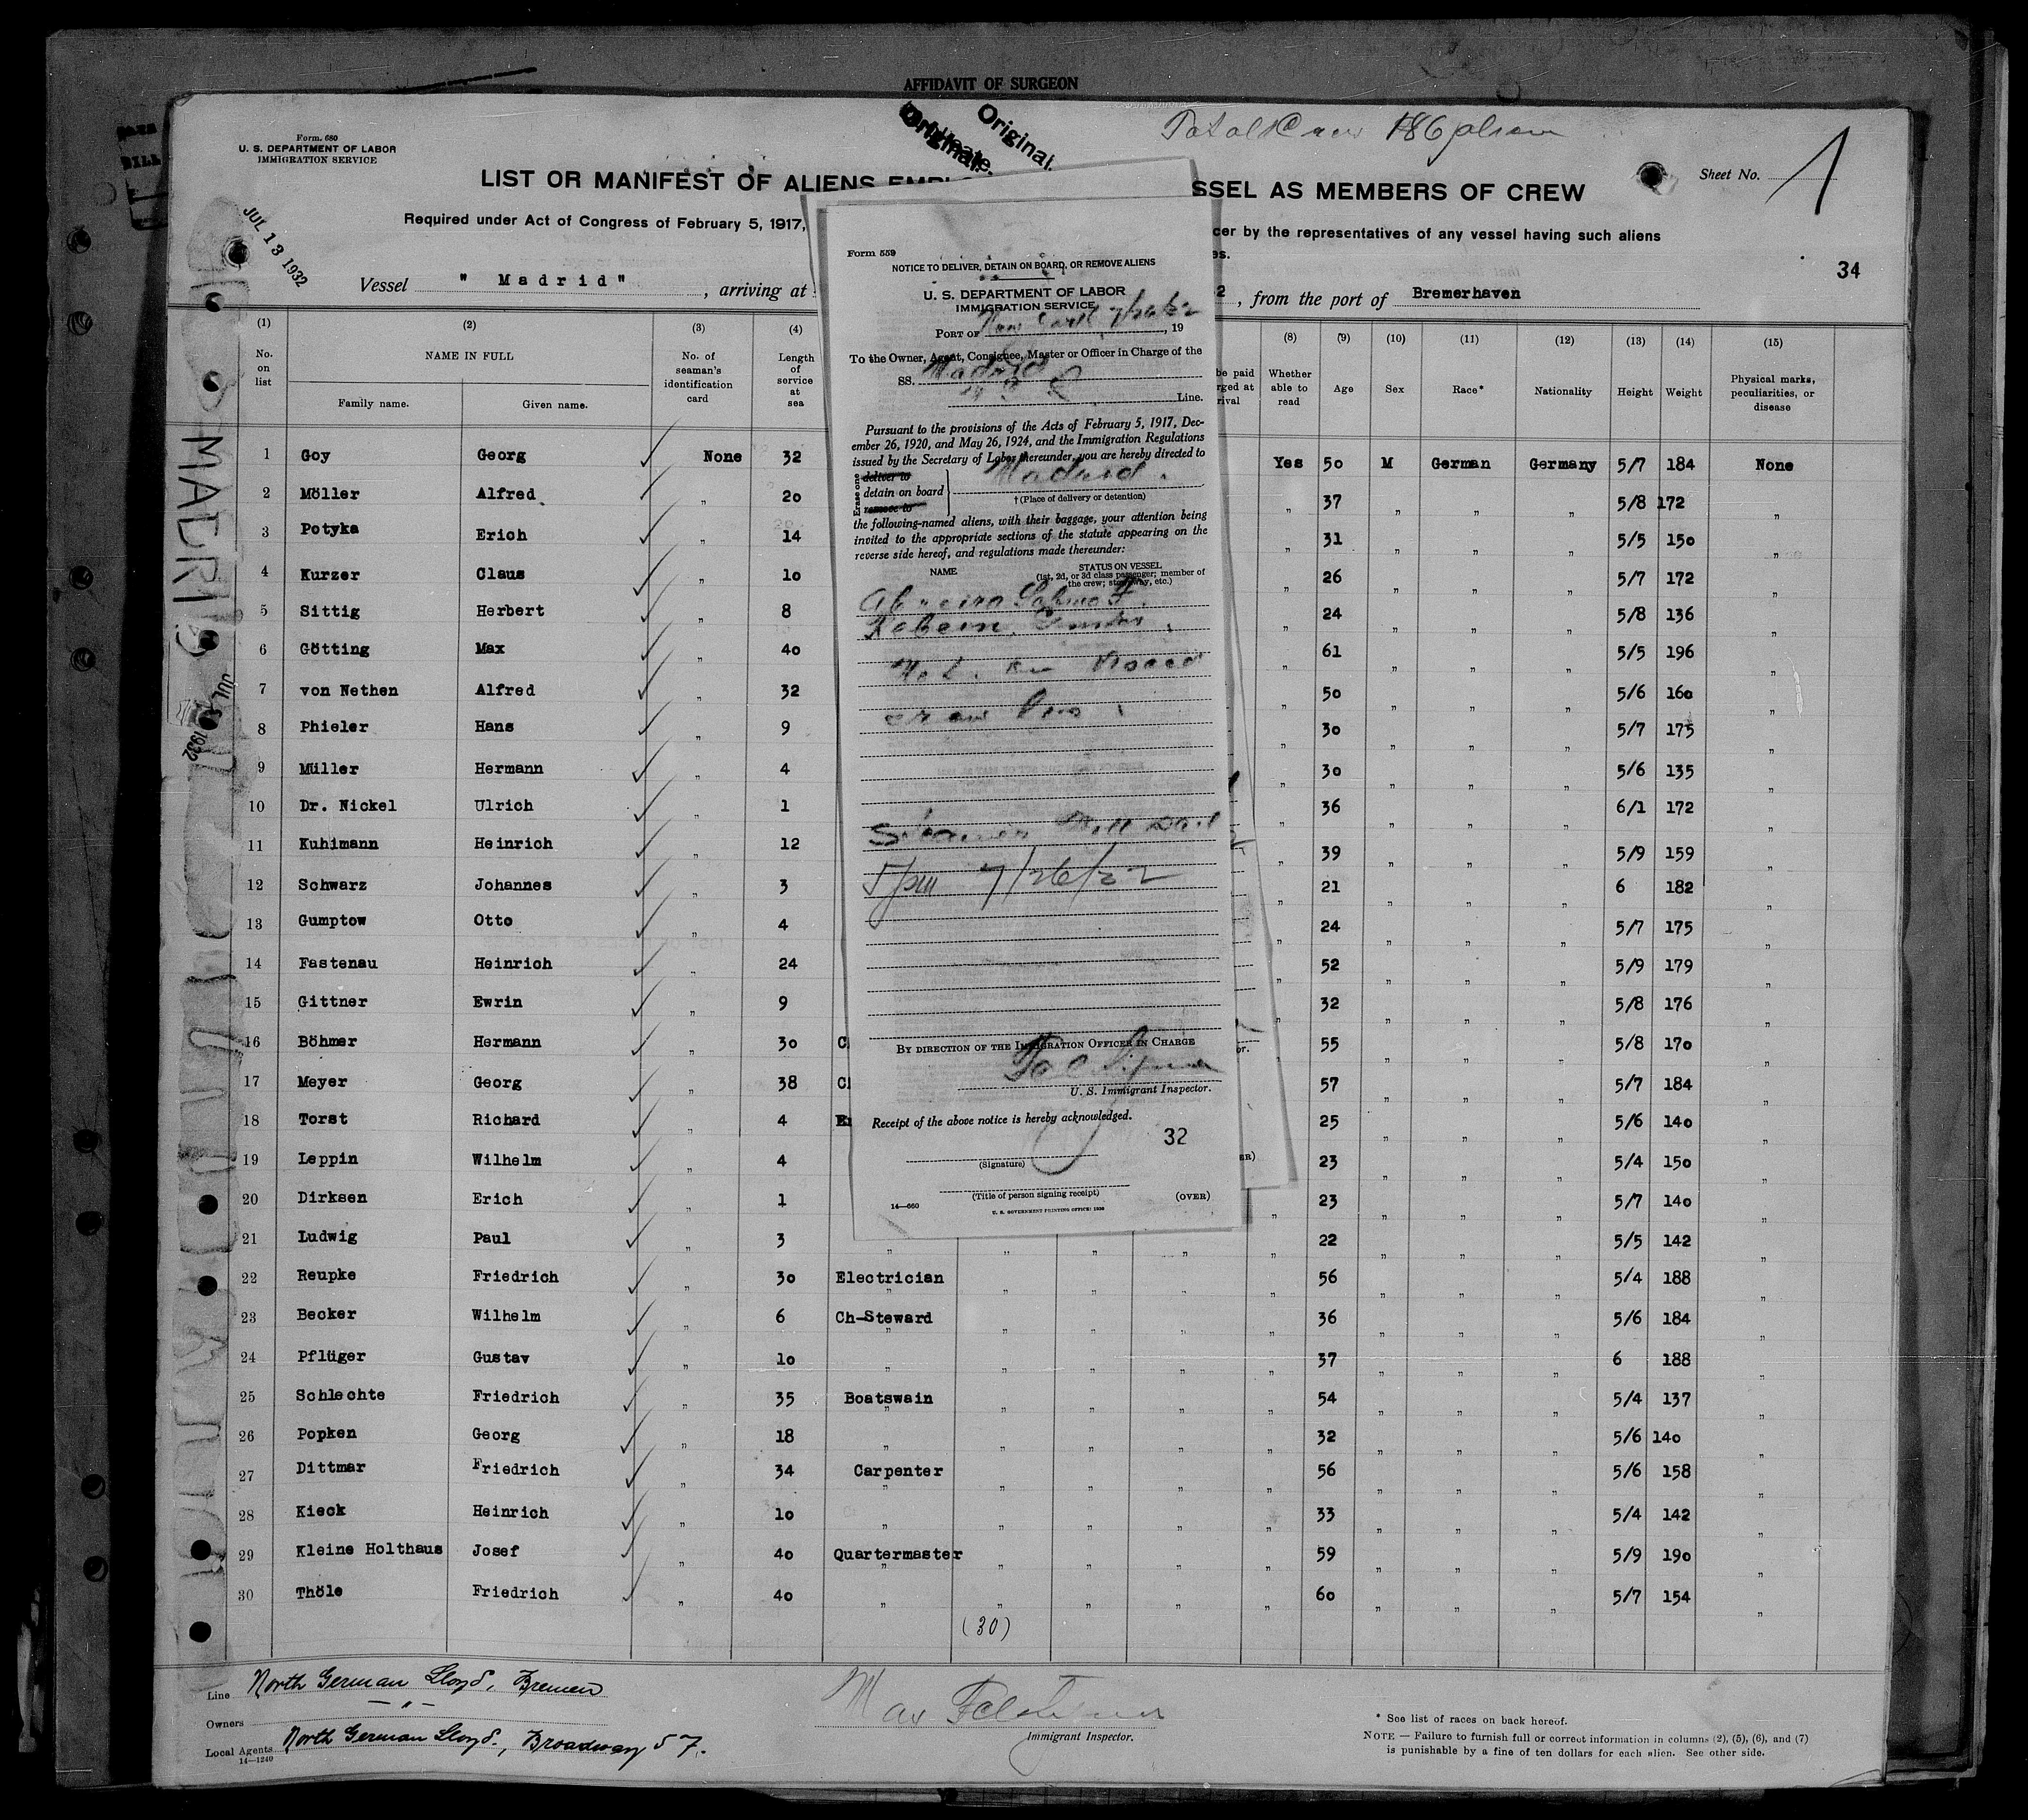 AFFIDAVIT OF SURGEON
Form. 680
U. S. DEPARTMENT OF LABOR
IMMIGRATION SERVICE
Original.
Original.
Total Crew 186
Sheet No. 1
LIST OR MANIFEST OF ALIENS
SSEL AS MEMBERS OF CREW
Required under Act of Congress of February 5, 1917,
cer by the representatives of any vessel having such aliens
es.
JUL 13 1932
34
Vessel "Madrid" , arriving at
2 , from the port of Bremerhaven
(1) (2) (3) (4) (8) (9) (10) (11) (12) (13) (14) (15)
No. on list NAME IN FULL Family name. Given name. No. of seaman's identification card Length of service at sea be paid rged at rival Whether able to read Age Sex Race* Nationality Height Weight Physical marks, peculiarities, or disease
MADRID
JUL 1932
1 Goy Georg ✓ None 32 Yes 50 M German Germany 5/7 184 None
2 Möller Alfred ✓ " 20 " 37 " " " 5/8 172 "
3 Potyka Erich ✓ " 14 " 31 " " " 5/5 150 "
4 Kurzer Claus ✓ " 10 " 26 " " " 5/7 172 "
5 Sittig Herbert ✓ " 8 " 24 " " " 5/8 136 "
6 Götting Max ✓ " 40 " 61 " " " 5/5 196 "
7 von Nethen Alfred ✓ " 32 " 50 " " " 5/6 160 "
8 Phieler Hans ✓ " 9 " 30 " " " 5/7 175 "
9 Müller Hermann ✓ " 4 " 30 " " " 5/6 135 "
10 Dr. Nickel Ulrich ✓ " 1 " 36 " " " 6/1 172 "
11 Kuhlmann Heinrich ✓ " 12 " 39 " " " 5/9 159 "
12 Schwarz Johannes ✓ " 3 " 21 " " " 6 182 "
13 Gumptow Otto ✓ " 4 " 24 " " " 5/7 175 "
14 Fastenau Heinrich ✓ " 24 " 52 " " " 5/9 179 "
15 Gittner Ewrin ✓ " 9 " 32 " " " 5/8 176 "
16 Böhmer Hermann ✓ " 30 C. " 55 " " " 5/8 170 "
17 Meyer Georg ✓ " 38 " 57 " " " 5/7 184 "
18 Torst Richard ✓ " 4 " 25 " " " 5/6 140 "
19 Leppin Wilhelm ✓ " 4 " 23 " " " 5/4 150 "
20 Dirksen Erich ✓ " 1 " 23 " " " 5/7 140 "
21 Ludwig Paul ✓ " 3 " " " " " 22 " " " 5/5 142 "
22 Reupke Friedrich ✓ " 30 Electrician " " " " 56 " " " 5/4 188 "
23 Becker Wilhelm ✓ " 6 Ch-Steward " " " " 36 " " " 5/6 184 "
24 Pflüger Gustav ✓ " 10 " " " " " 37 " " " 6 188 "
25 Schlechte Friedrich ✓ " 35 Boatswain " " " " 54 " " " 5/4 137 "
26 Popken Georg ✓ " 18 " " " " " 32 " " " 5/6 140 "
27 Dittmar Friedrich ✓ " 34 Carpenter " " " " 56 " " " 5/6 158 "
28 Kieck Heinrich ✓ " 10 " " " " " 33 " " " 5/4 142 "
29 Kleine Holthaus Josef ✓ " 40 Quartermaster " " " " 59 " " " 5/9 190 "
30 Thöle Friedrich ✓ " 40 " " " " " 60 " " " 5/7 154 "
(30)
Form 559
NOTICE TO DELIVER, DETAIN ON BOARD, OR REMOVE ALIENS
U. S. DEPARTMENT OF LABOR
IMMIGRATION SERVICE
PORT OF New York 7/26/32, 19
To the Owner, Agent, Consignee, Master or Officer in Charge of the
SS. Madrid
Line.
Pursuant to the provisions of the Acts of February 5, 1917, Dec-
ember 26, 1920, and May 26, 1924, and the Immigration Regulations
issued by the Secretary of Labor thereunder, you are hereby directed to
Erase one
deliver to
detain on board Madrid.
remove to
†(Place of delivery or detention)
the following-named aliens, with their baggage, your attention being
invited to the appropriate sections of the statute appearing on the
reverse side hereof, and regulations made thereunder:
NAME STATUS ON VESSEL
(1st, 2d, or 3d class passenger; member of
the crew; stowaway, etc.)
Steamer Will Sail
5 pm 7/26/32
BY DIRECTION OF THE IMMIGRATION OFFICER IN CHARGE
U. S. Immigrant Inspector.
Receipt of the above notice is hereby acknowledged.
32
(Signature)
(Title of person signing receipt) (OVER)
14—660 U. S. GOVERNMENT PRINTING OFFICE: 1930
or.
ER)
Line North German Lloyd, Bremen
Owners — " —
Local Agents North German Lloyd., Broadway 57.
14—1240
Max
Immigrant Inspector.
* See list of races on back hereof.
NOTE — Failure to furnish full or correct information in columns (2), (5), (6), and (7)
is punishable by a fine of ten dollars for each alien. See other side.